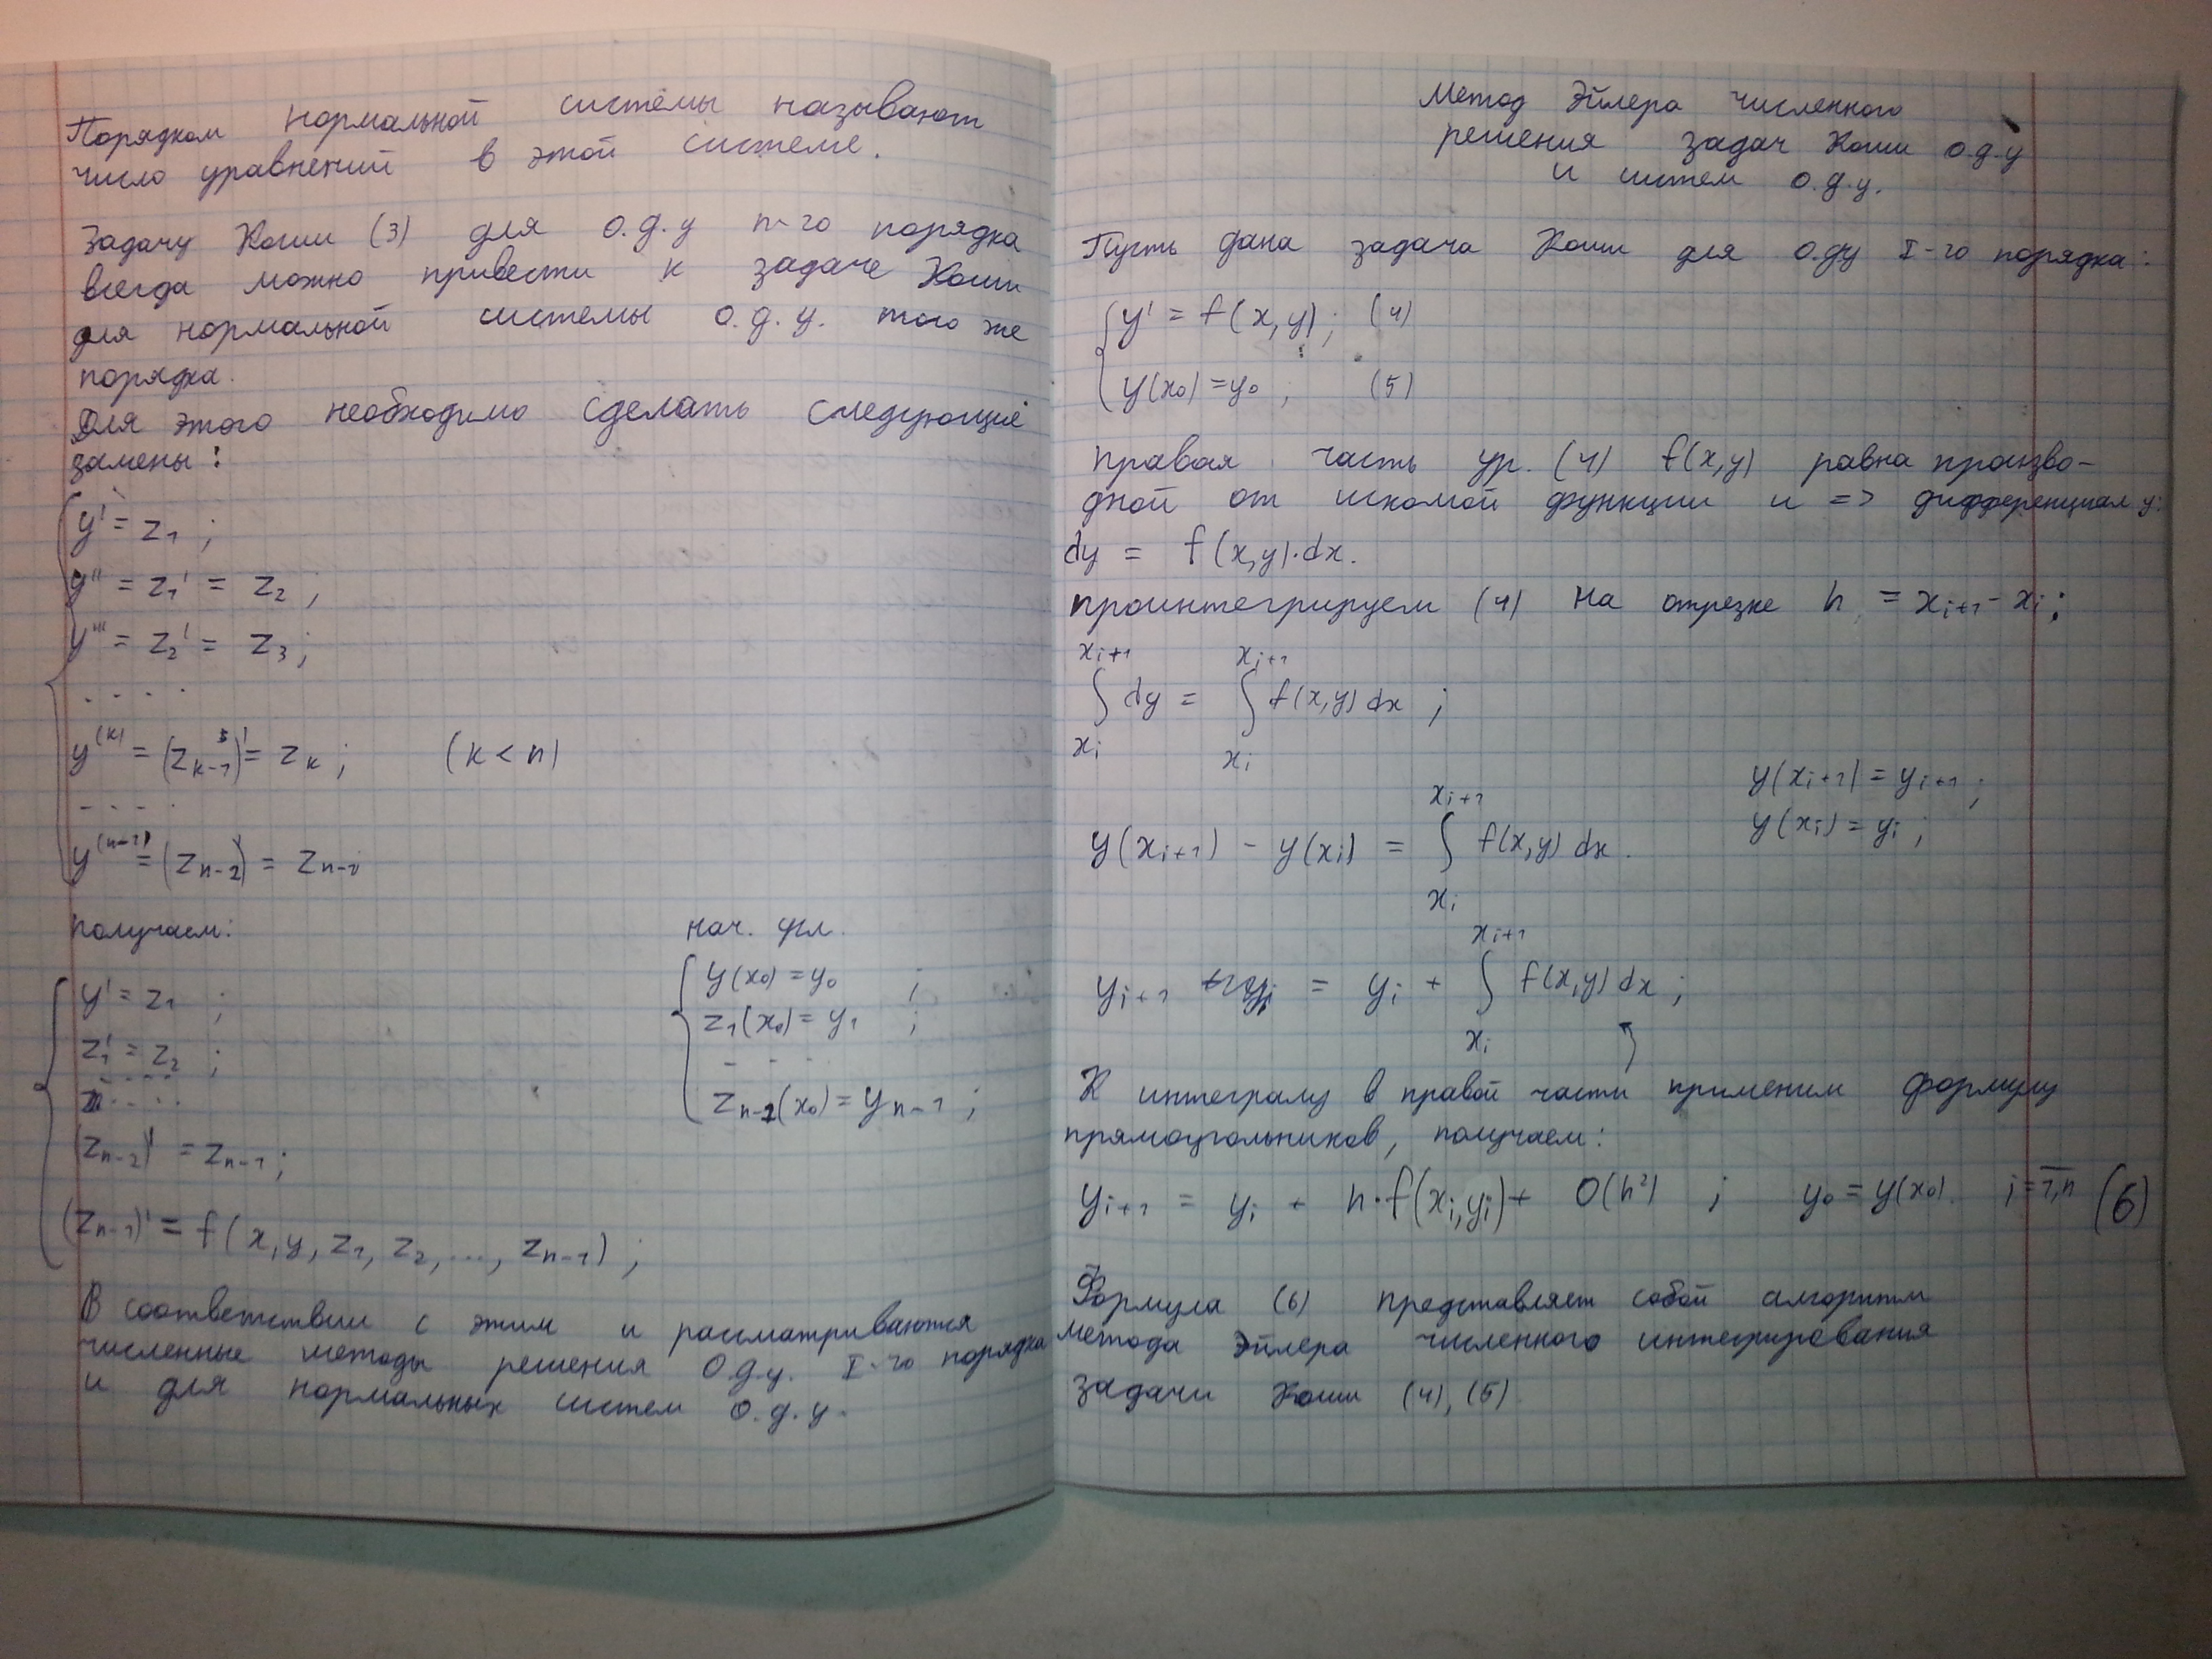 Порядком нормальной системы называют
число уравнений в этой системе.
Задачу Коши (3) для о.д.у n-го порядка
всегда можно привести к задаче Коши
для нормальной системы о.д.у. того же
порядка.
Для этого необходимо сделать следующие
замены:
y' = z₁ ;
y'' = z₁' = z₂ ;
y''' = z₂' = z₃ ;
. . . .
y⁽ᵏ⁾ = (z_{k-1})' = z_k ; (k < n)
. . . .
y⁽ⁿ⁻¹⁾ = (z_{n-2})' = z_{n-1}
получаем:
y' = z₁ ;
z₁' = z₂ ;
. . . .
(z_{n-2})' = z_{n-1} ;
(z_{n-1})' = f(x, y, z₁, z₂, ..., z_{n-1}) ;
нач. усл.
y(x₀) = y₀ ;
z₁(x₀) = y₁ ;
. . .
z_{n-1}(x₀) = y_{n-1} ;
В соответствии с этим и рассматриваются
численные методы решения О.д.у. I-го порядка
и для нормальных систем о.д.у.
Метод Эйлера численного
решения задач Коши о.д.у
и систем о.д.у.
Пусть дана задача Коши для о.ду I-го порядка:
y' = f(x, y) ; (4)
y(x₀) = y₀ ; (5)
правая часть ур. (4) f(x,y) равна произво-
дной от искомой функции и => дифференциал y:
dy = f(x,y)·dx.
проинтегрируем (4) на отрезке h = x_{i+1} - x_i :
∫_{x_i}^{x_{i+1}} dy = ∫_{x_i}^{x_{i+1}} f(x,y) dx ;
y(x_{i+1}) - y(x_i) = ∫_{x_i}^{x_{i+1}} f(x,y) dx.
y(x_{i+1}) = y_{i+1} ;
y(x_i) = y_i ;
y_{i+1} = y_i + ∫_{x_i}^{x_{i+1}} f(x,y) dx ;
К интегралу в правой части применим формулу
прямоугольников, получаем:
y_{i+1} = y_i + h·f(x_i, y_i) + O(h²) ; y₀ = y(x₀). i = 1,n (6)
Формула (6) представляет собой алгоритм
метода Эйлера численного интегрирования
задачи Коши (4), (5)